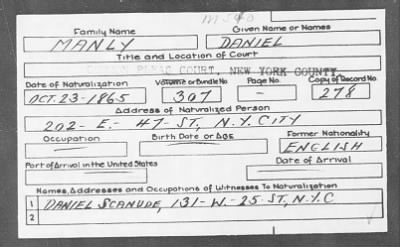 M540
Family Name Given Name or Names
MANLY DANIEL
Title and Location of Court
PLEAS COURT, NEW YORK COUNTY
Date of Naturalization Volume or Bundle No. Page No. Copy of Record No.
OCT. 23-1865 307 - 278
Address of Naturalized Person
202- E.- 47- ST, N.Y. CITY
Occupation Birth Date or Age Former Nationality
ENGLISH
Port of Arrival in the United States Date of Arrival
Names, Addresses and Occupations of Witnesses To Naturalization
1 DANIEL SCANUDE, 131-W.-25-ST, N.Y.C
2